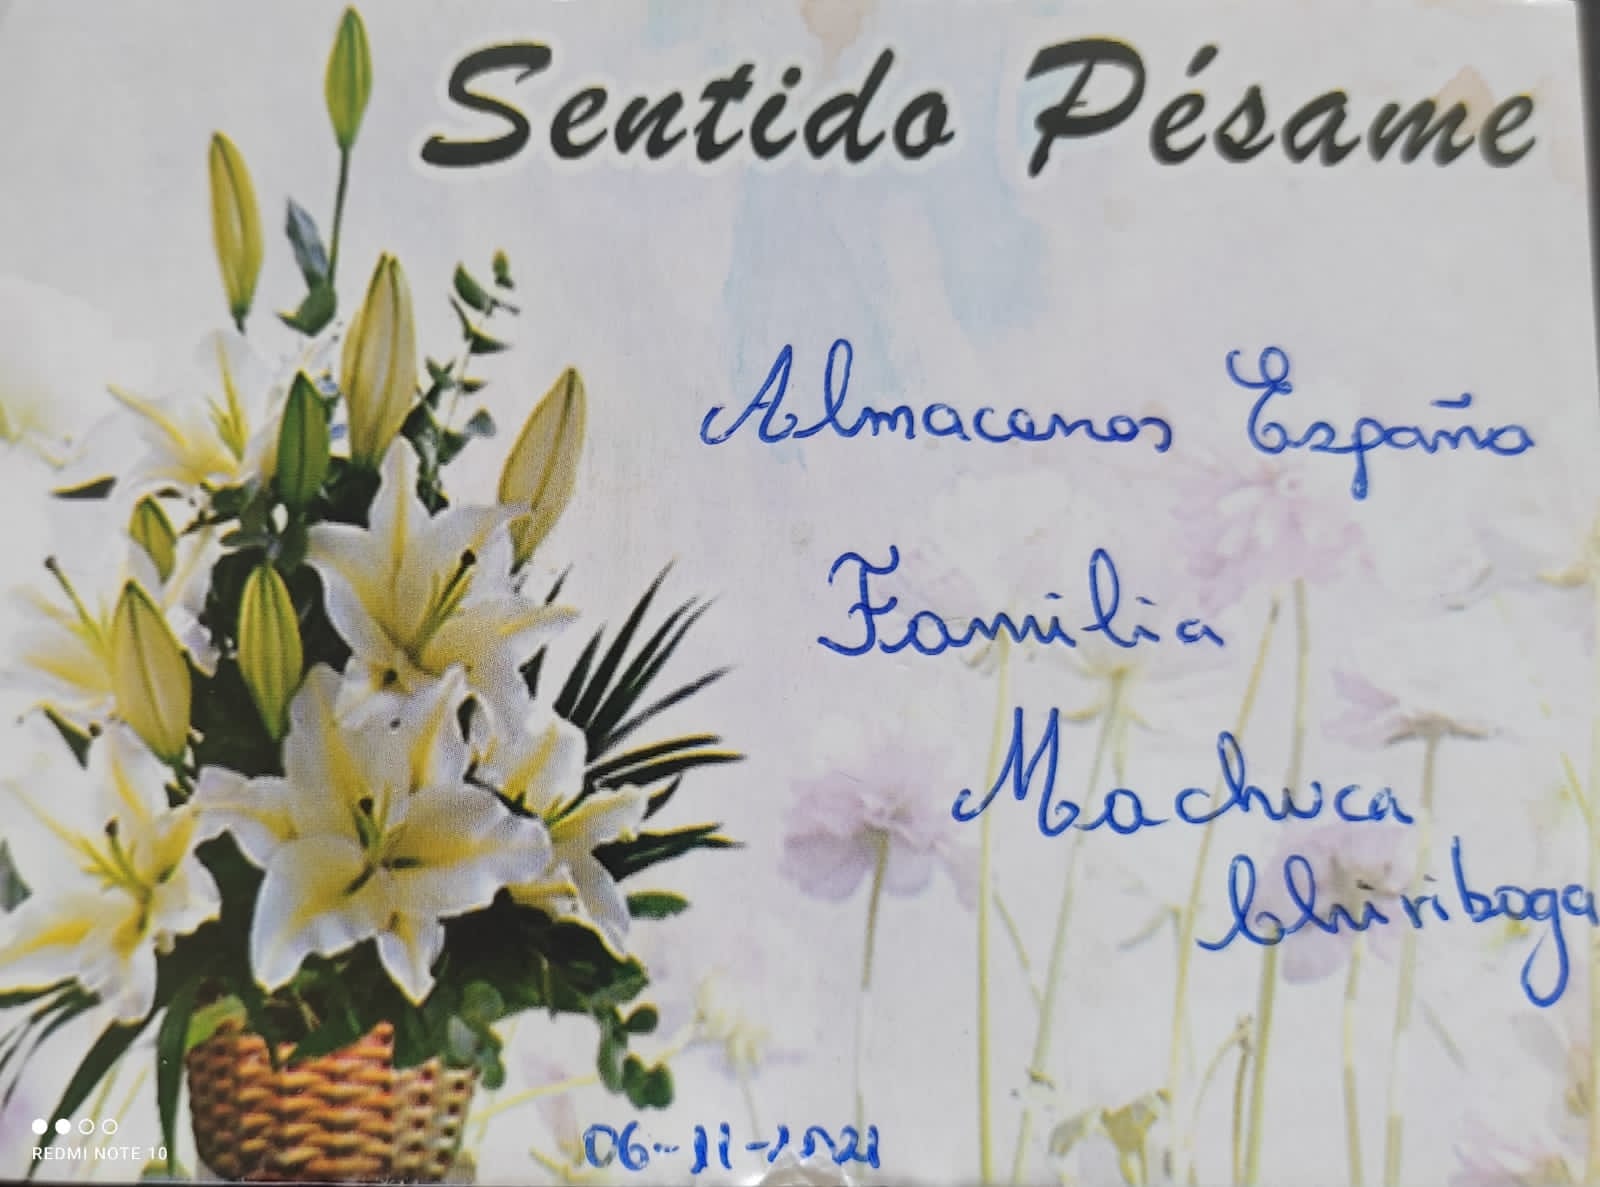 Sentido Pésame
Almacenes España
Familia
Machuca
Chiriboga
06-11-2021
REDMI NOTE 10